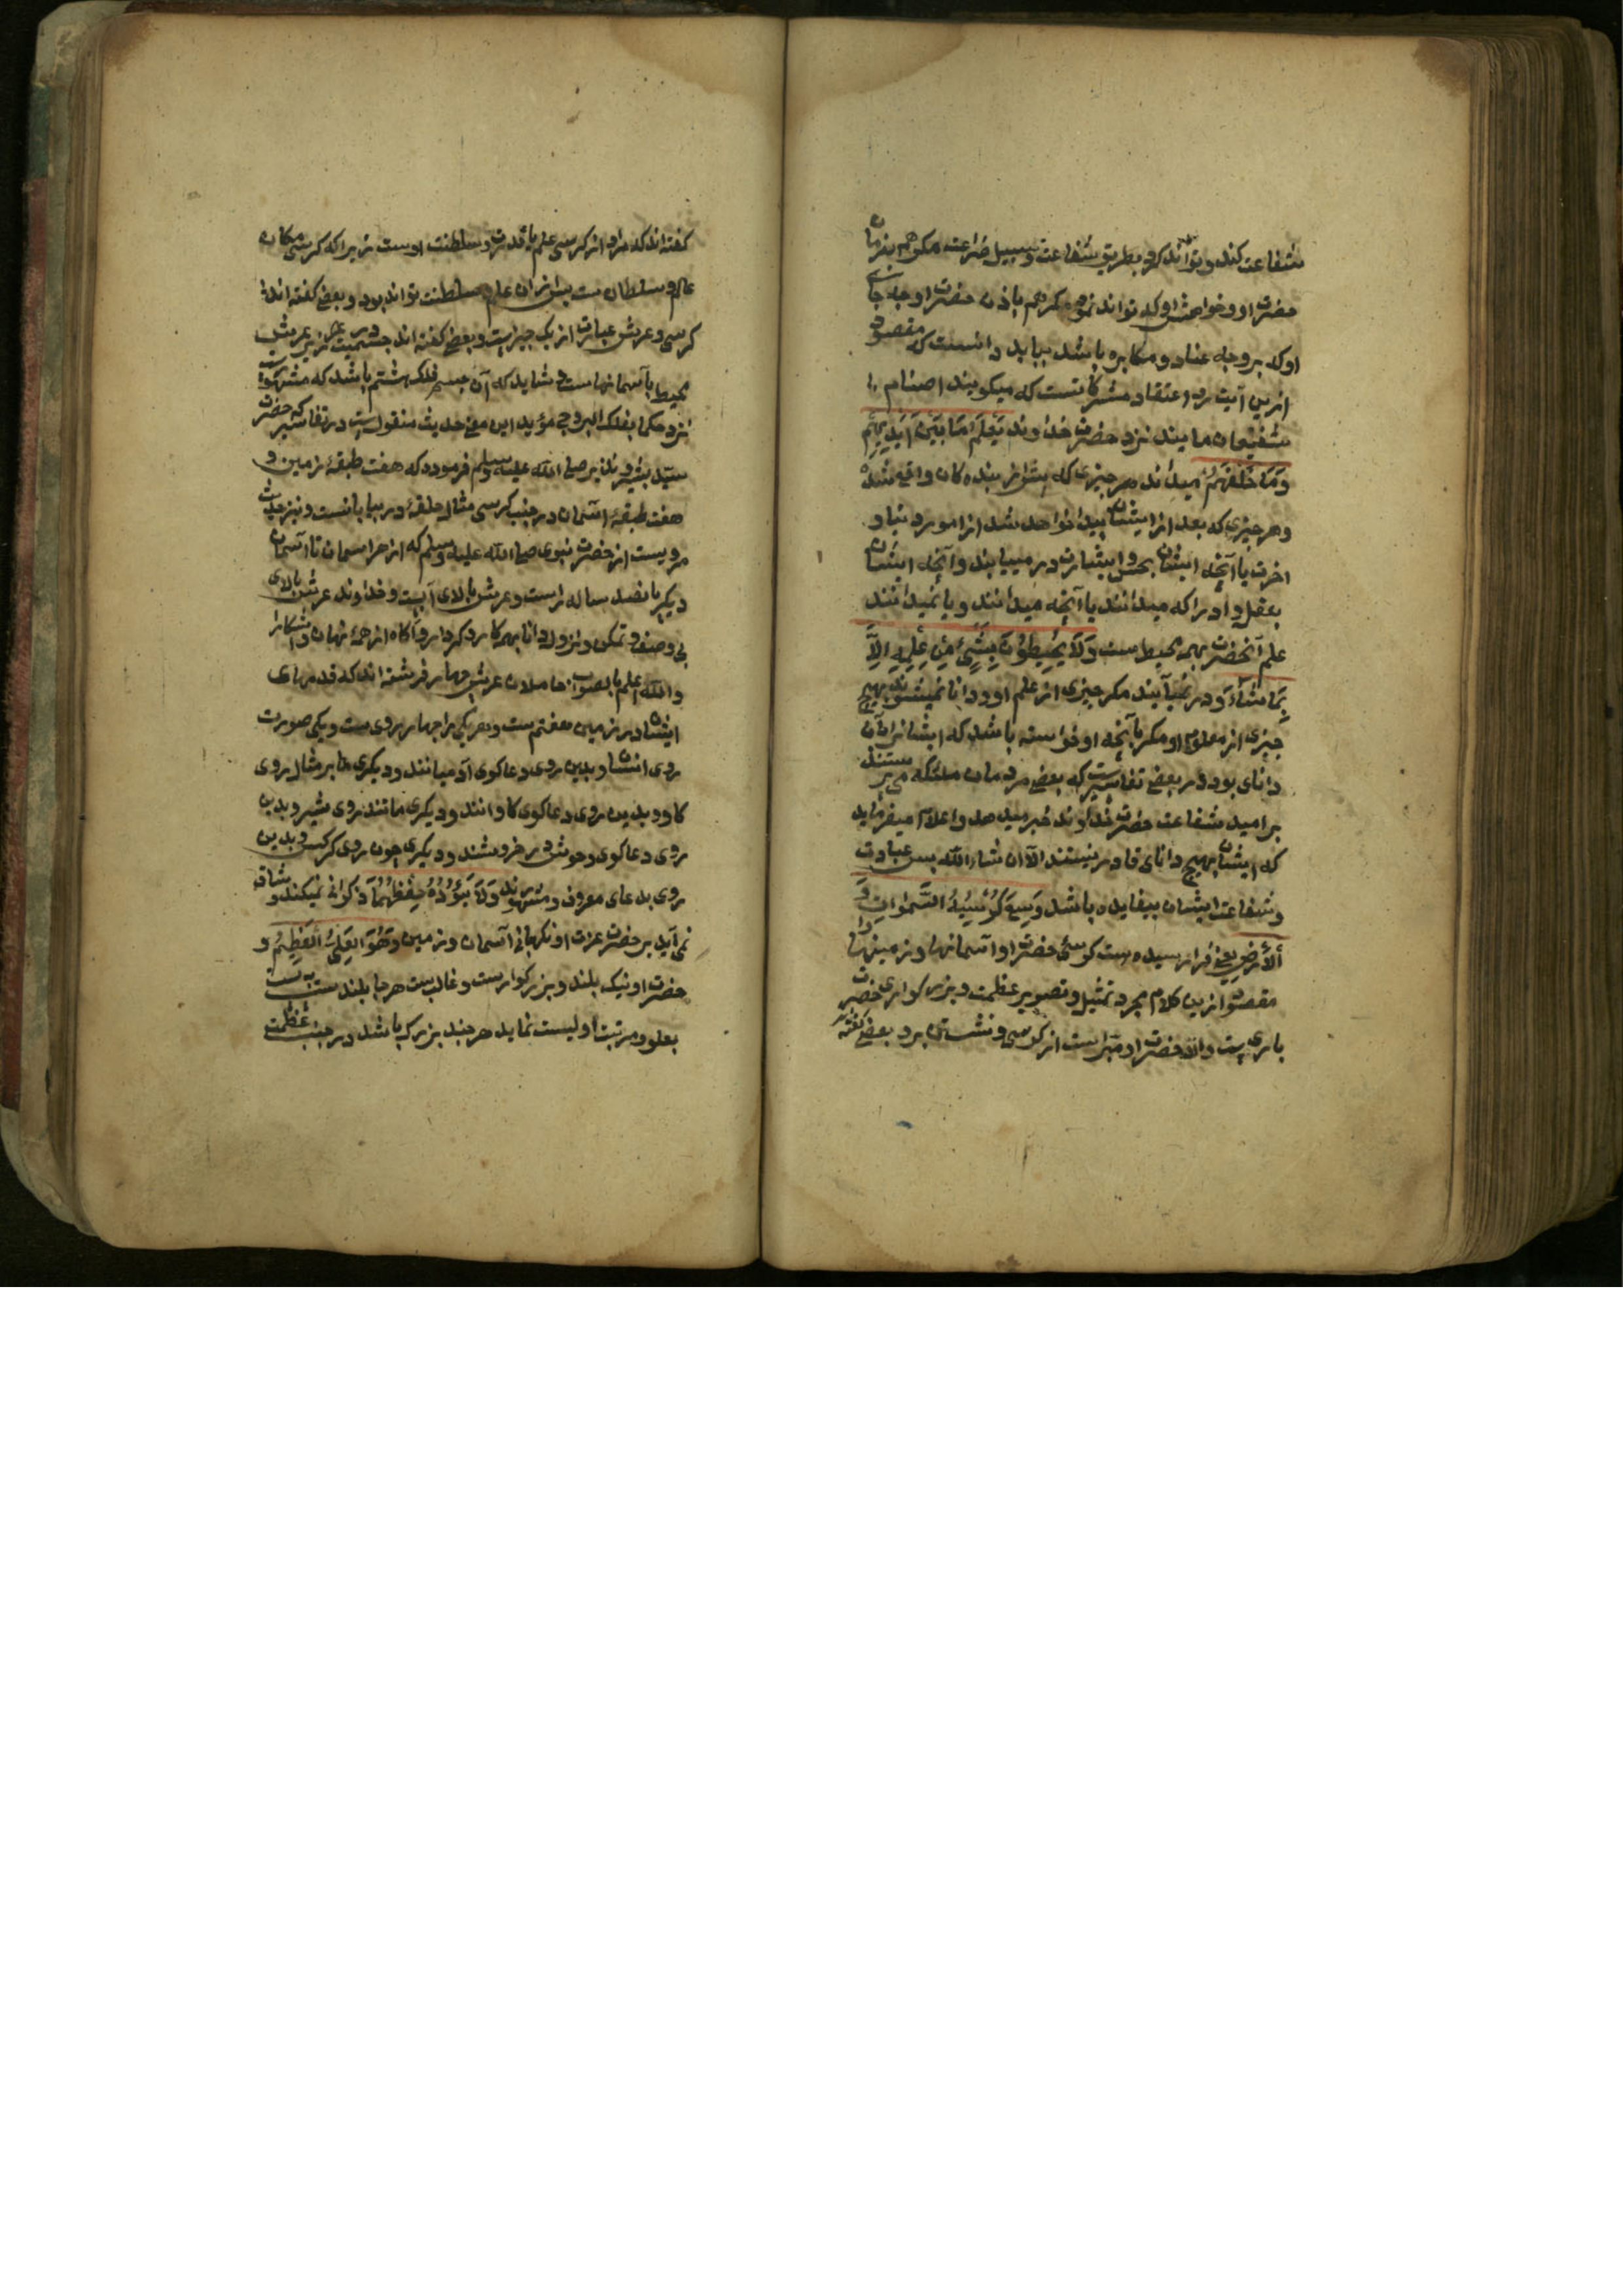 شفاعت کند و تواند کرد بطریق شفاعت و سبیل ضراعت مکر هم بفرمان
حضرت او و خواهش او که تواند نمود مکر هم باذن حضرت او چه جای
او که بر وجه عناد و مکابره باشد بباید دانست که مقصود
ازین آیت رد اعتقاد مشرکانست که میکویند اصنام
شفیعان مایند نزد حضرت خداوند یَعْلَمُ مَا بَیْنَ اَیْدِیهِمْ
وَمَا خَلْفَهُمْ میداند هر چیزی که پیش از بنده کان واقع شده
و هر چیزی که بعد از ایشان پیدا خواهد شد از امور دنیا و
اخرت یا آنچه ایشان بحس و بشارت در مییابند و آنچه ایشان
بعقل و ادراکه میدانند یا آنچه میدانند و یا نمیدانند
علم آنحضرت بهمه محیط ست وَلَا یُحِیطُونَ بِشَیْءٍ مِنْ عِلْمِهِ اِلَّا
بِمَا شَاءَ و در نمییابند مکر چیزی از علم او و دانا نمیشوند بهیچ
چیزی از معلوم او مکر بآنچه او خواسته باشد که ایشانرا بآن
دانای بود در بعض تفاسیرست که بعض مردمان ملئکه می پرستند
بر امید شفاعت حضرت خداوند خبر میدهد و اعلام میفرماید
که ایشان بهیچ دانای قادر نیستند الا ان شاء الله پس عبادت
و شفاعت ایشان بیفایده باشد وَسِعَ کُرْسِیُّهُ السَّمٰوَاتِ وَ
اَلْاَرْضَ یعنی فرا رسیده ست کرسی حضرت او آسمانها و زمینها را
مقصود ازین کلام مجرد تمثیل و تصویر عظمت و بزرکواری حضرت
باری ست والا حضرت او مبراست از کرسی و نشستن برو بعض کفته
کفته اند که مراد از کرسی علم یا قدرت و سلطنت اوست زیرا که کرسی مکان
عالم و سلطان ست پس ازان علم و سلطنت تواند بود و بعض کفته اند
کرسی و عرش عبارت از یک چیزست و بعض کفته اند جسمیست در زیر عرش
محیط بآسمانهاست و شاید که آن جسم فلک هشتم باشد که مشهورست
نزد حکما بفلک البروج مؤید این معنی حدیث منقولست در تفاسیر که حضرت
سید بشیر و نذیر صلی الله علیه وسلم فرموده که هفت طبقهٔ زمین و
هفت طبقهٔ آسمان در جنب کرسی مثال حلقهٔ در بیابانست و نیز حدیث
مرویست از حضرت نبوی صلی الله علیه وسلم که از هر اسمان تا آسمان
دیکر پانصد ساله راست و عرش بالای آبست و خداوند عرش بالای
بی وصف تمکن و نزول و دانا بهمه کار و کردار و آکاه از همهٔ نهان و اشکارا
والله اعلم بالصواب حاملان عرش چهار فرشته اند که قدمهای
ایشان در زمین هفتم ست و هر یکی را چهار روی ست و یکی صورت
روی انسان و بدین روی دعا کوی آدمیانند و دیکری بر مثال روی
کاو و بدین روی دعا کوی کاوانند و دیکری مانند روی شیر و بدین
روی دعا کوی وحوش در خروشند و دیکری چون روی کرکس و بدین
روی بدعای معروف و مشهورند وَلَا یَؤُدُهُ حِفْظُهُمَا و کرانی نمیکند و شاقه
نمی آید بر حضرت عزت او نکهبانی آسمان و زمین وَهُوَ الْعَلِیُّ الْعَظِیمُ و
حضرت او نیک بلند و بزرکوارست و غالبست هر جا بلند ست پست
بعلو و مرتبت او لیست نماید هر چند بزرک باشد در جنب عظمت